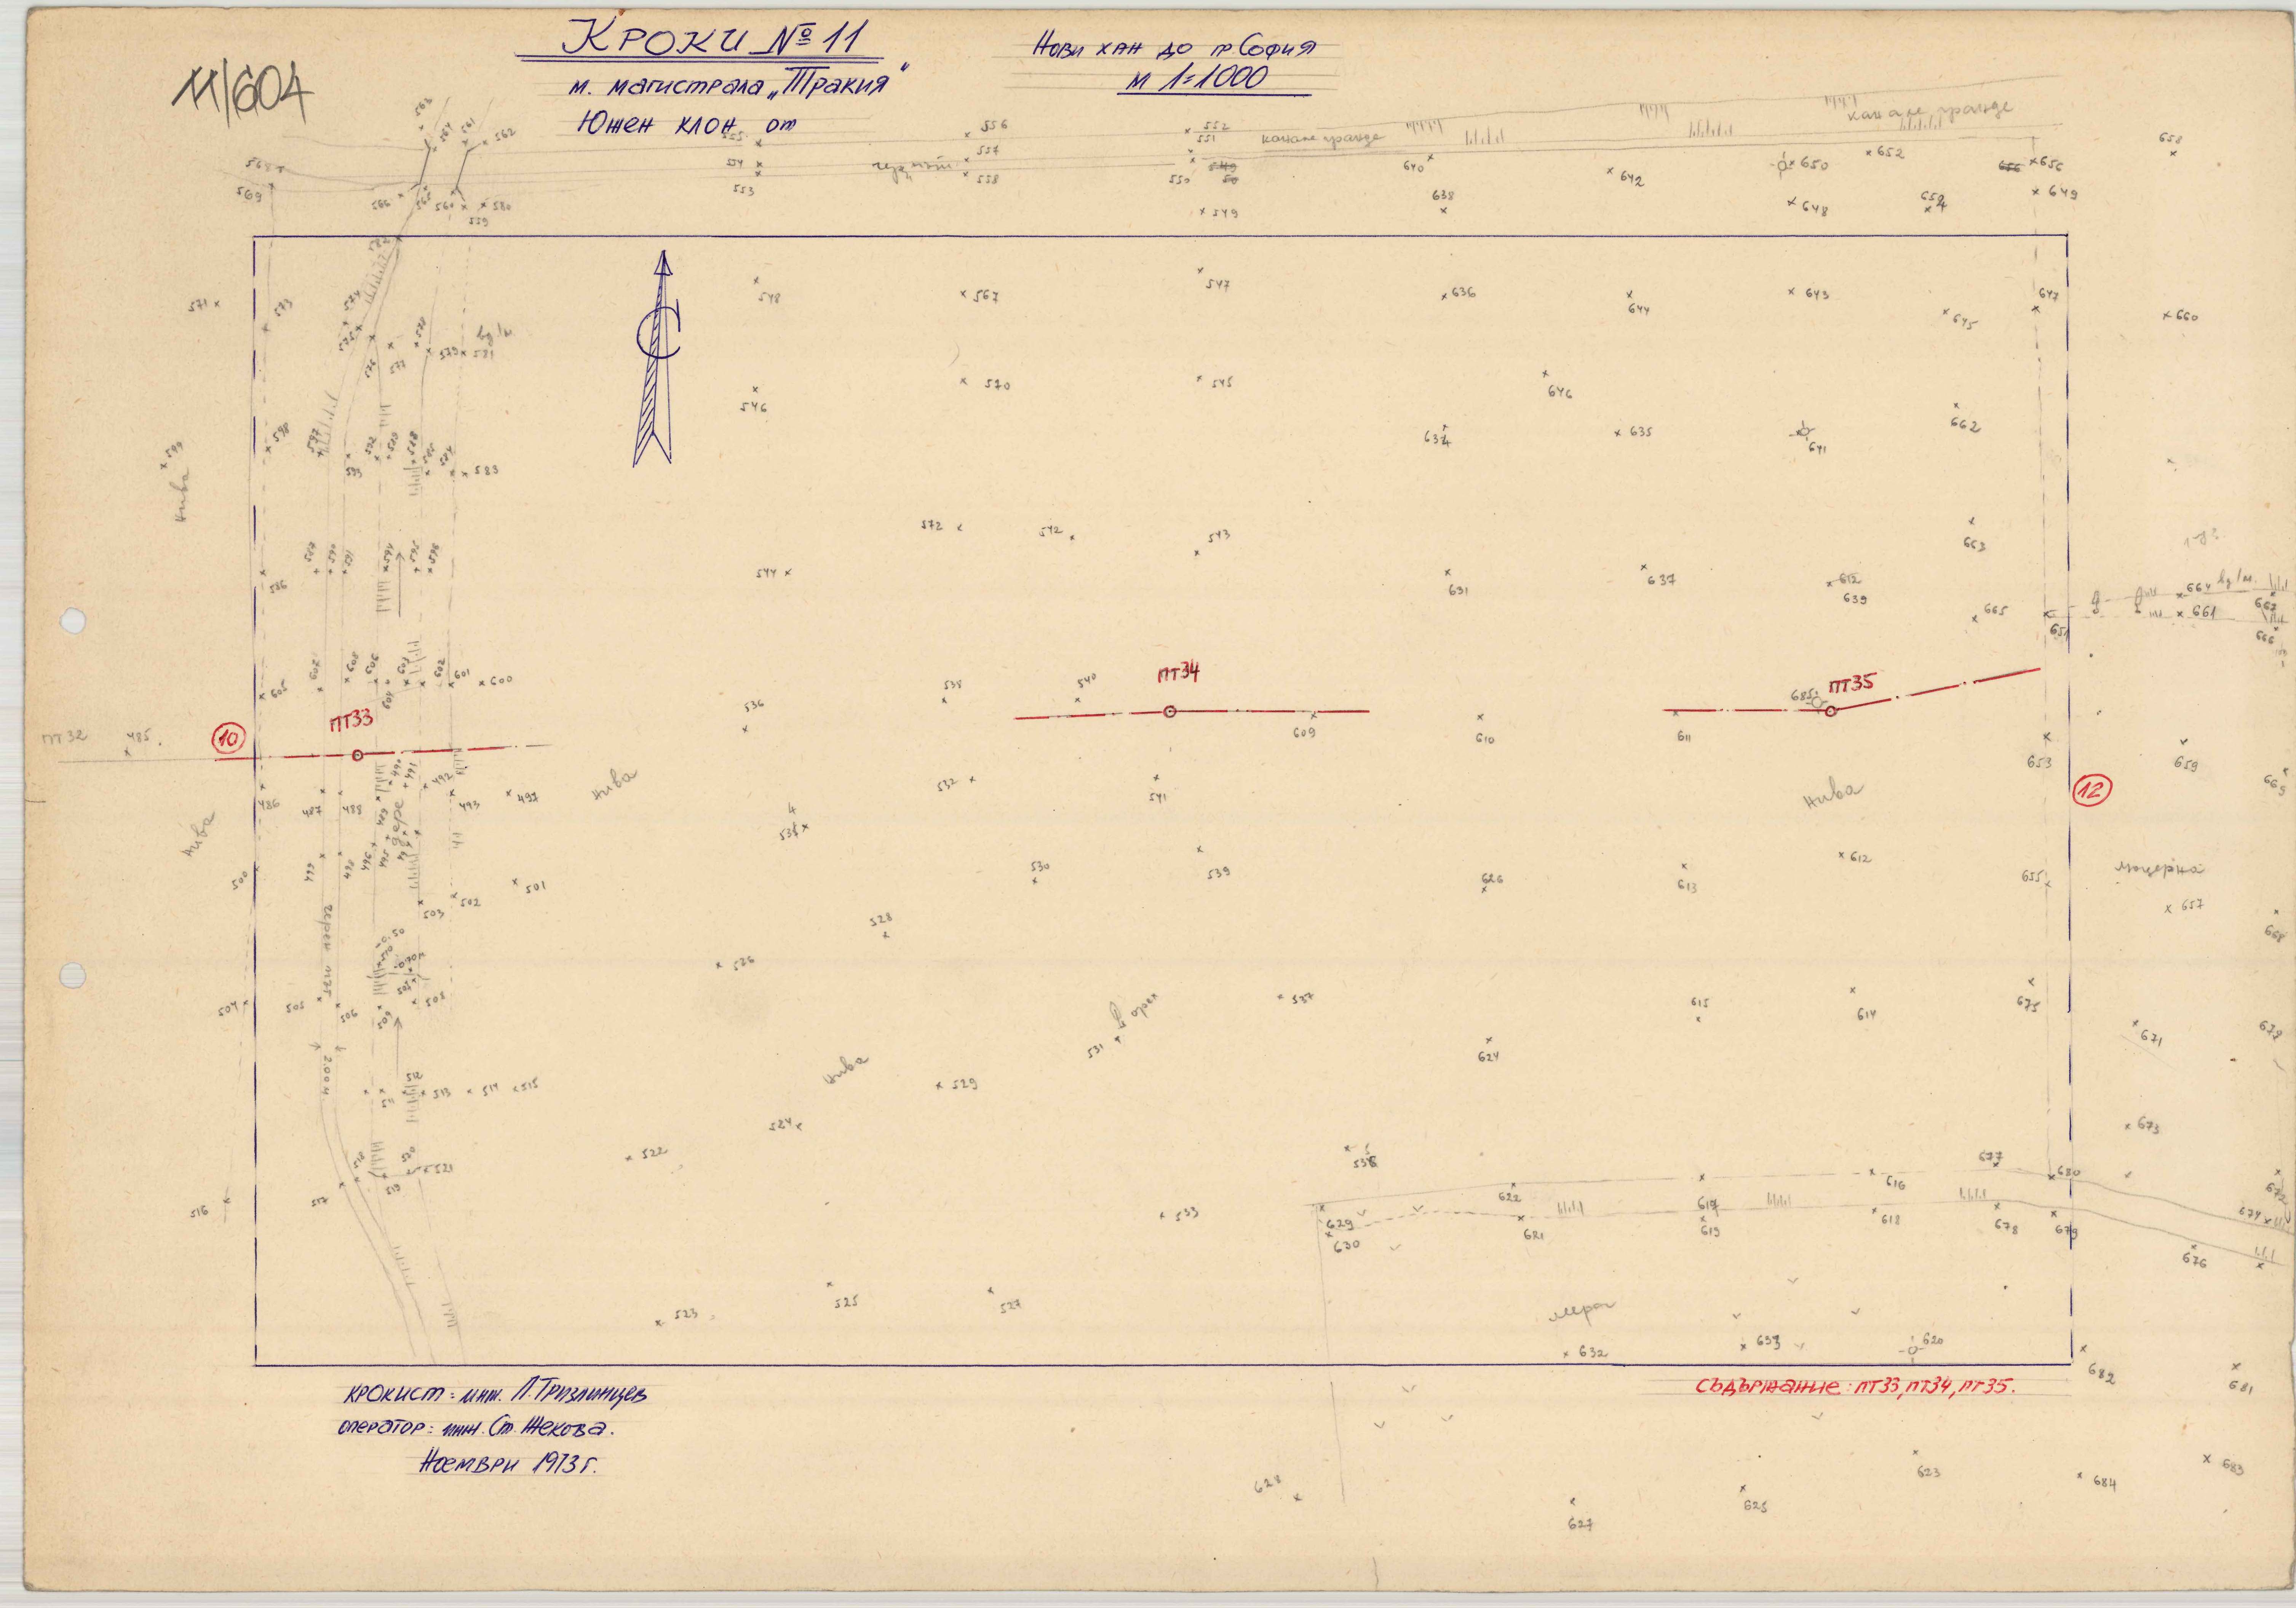 11/604
КРОКИ № 11
м. магистрала „Тракия"
Южен клон от
Нови хан до гр. София
М 1=1000
563
564
561
562
555
556
557
558
554
553
552
551
550
549
канале
канале
640
638
642
650
652
656
649
648
654
658
568
569
566
565
560
580
559
582
571
573
574
548
567
547
636
644
643
645
647
660
577
578
579
581
546
570
545
646
634
635
641
662
599
598
597
583
Нива
572
542
543
544
631
637
612
639
663
665
651
664
661
667
666
596
605
607
608
606
603
602
601
600
536
538
540
ПТ34
609
610
611
685
ПТ35
653
659
669
ПТ32
485
10
ПТ33
12
486
487
488
489
490
491
492
493
497
дере
Нива
532
541
534
Нива
Нива
500
499
498
496
495
501
502
503
530
539
626
613
612
655
люцерна
657
668
528
526
537
615
614
675
671
504
505
506
509
508
531
орех
624
Нива
513
514
515
529
524
673
516
517
518
519
520
521
522
533
622
617
616
677
680
672
674
629
630
621
619
618
678
679
676
523
525
527
мера
632
633
620
682
681
крокист: инж. Л. Тризлинцев
оператор: инж. Ст. Жекова.
Ноември 1973 г.
СЪДЪРЖАНИЕ: ПТ33, ПТ34, ПТ35.
628
627
625
623
684
683